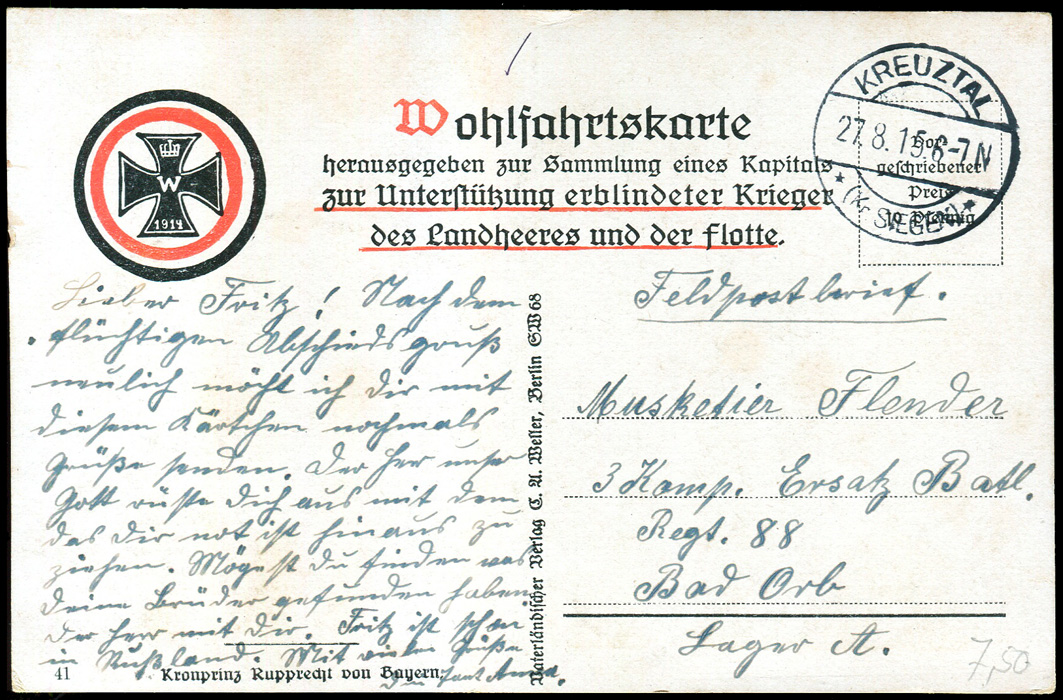 Wohlfahrtskarte
herausgegeben zur Sammlung eines Kapitals
zur Unterstützung erblindeter Krieger
des Landheeres und der Flotte.
W
1914
KREUZTAL
27.8.15.6-7N
* (Kr. SIEGEN) *
Vor-
geschriebener
Preis
10 Pfennig
Lieber Fritz! Nach dem
flüchtigen Abschiedsgruß
neulich möcht ich Dir mit
diesem Kärtchen nochmals
Grüße senden. Der Herr unser
Gott rüste Dich aus mit dem
das Dir not ist hinaus zu
ziehen. Mögest Du finden was
Deine Brüder gefunden haben.
Der Herr mit Dir. Fritz ist schon
in Rußland. Mit vielen Grüße
Tant
41
Kronprinz Rupprecht von Bayern.
Vaterländischer Verlag C. A. Weller, Berlin SW 68
Feldpostbrief.
Musketier Flender
3 Komp. Ersatz Batl.
Regt. 88
Bad Orb
Lager A.
7,50